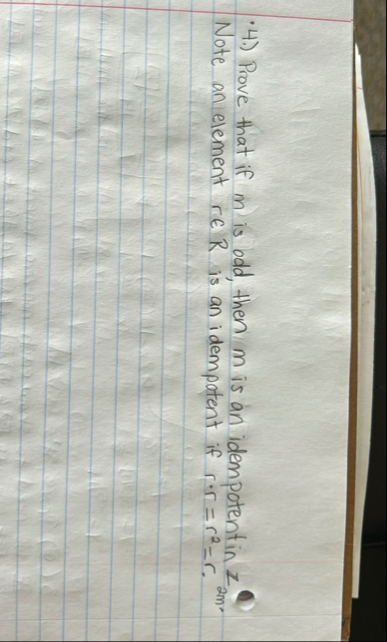 4.) Prove that if m is odd, then m is an idempotent in ℤ₂ₘ.
Note an element r ∈ R is an idempotent if r·r = r² = r.